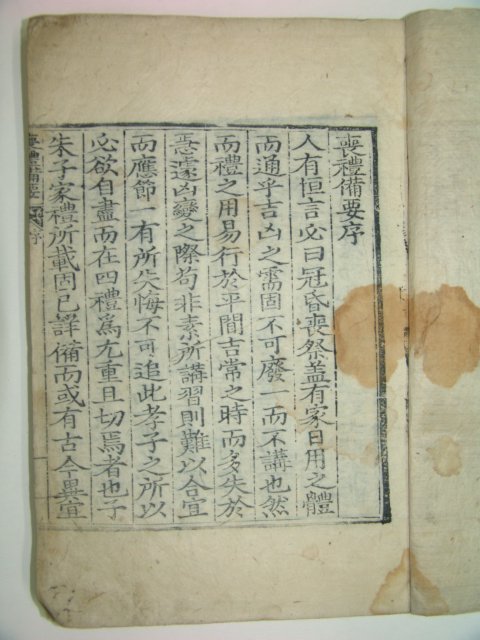 喪禮備要序
人有恒言必曰冠昏喪祭盖有家日用之體
而通乎吉凶之需固不可廢一而不講也然
而禮之用易行於平間吉常之時而多失於
急遽凶變之際苟非素所講習則難以合宜
而應節一有所失悔不可追此孝子之所以
必欲自盡而在四禮爲尢重且切焉者也子
朱子家禮所載固已詳備而或有古今異宜
喪禮備要 序